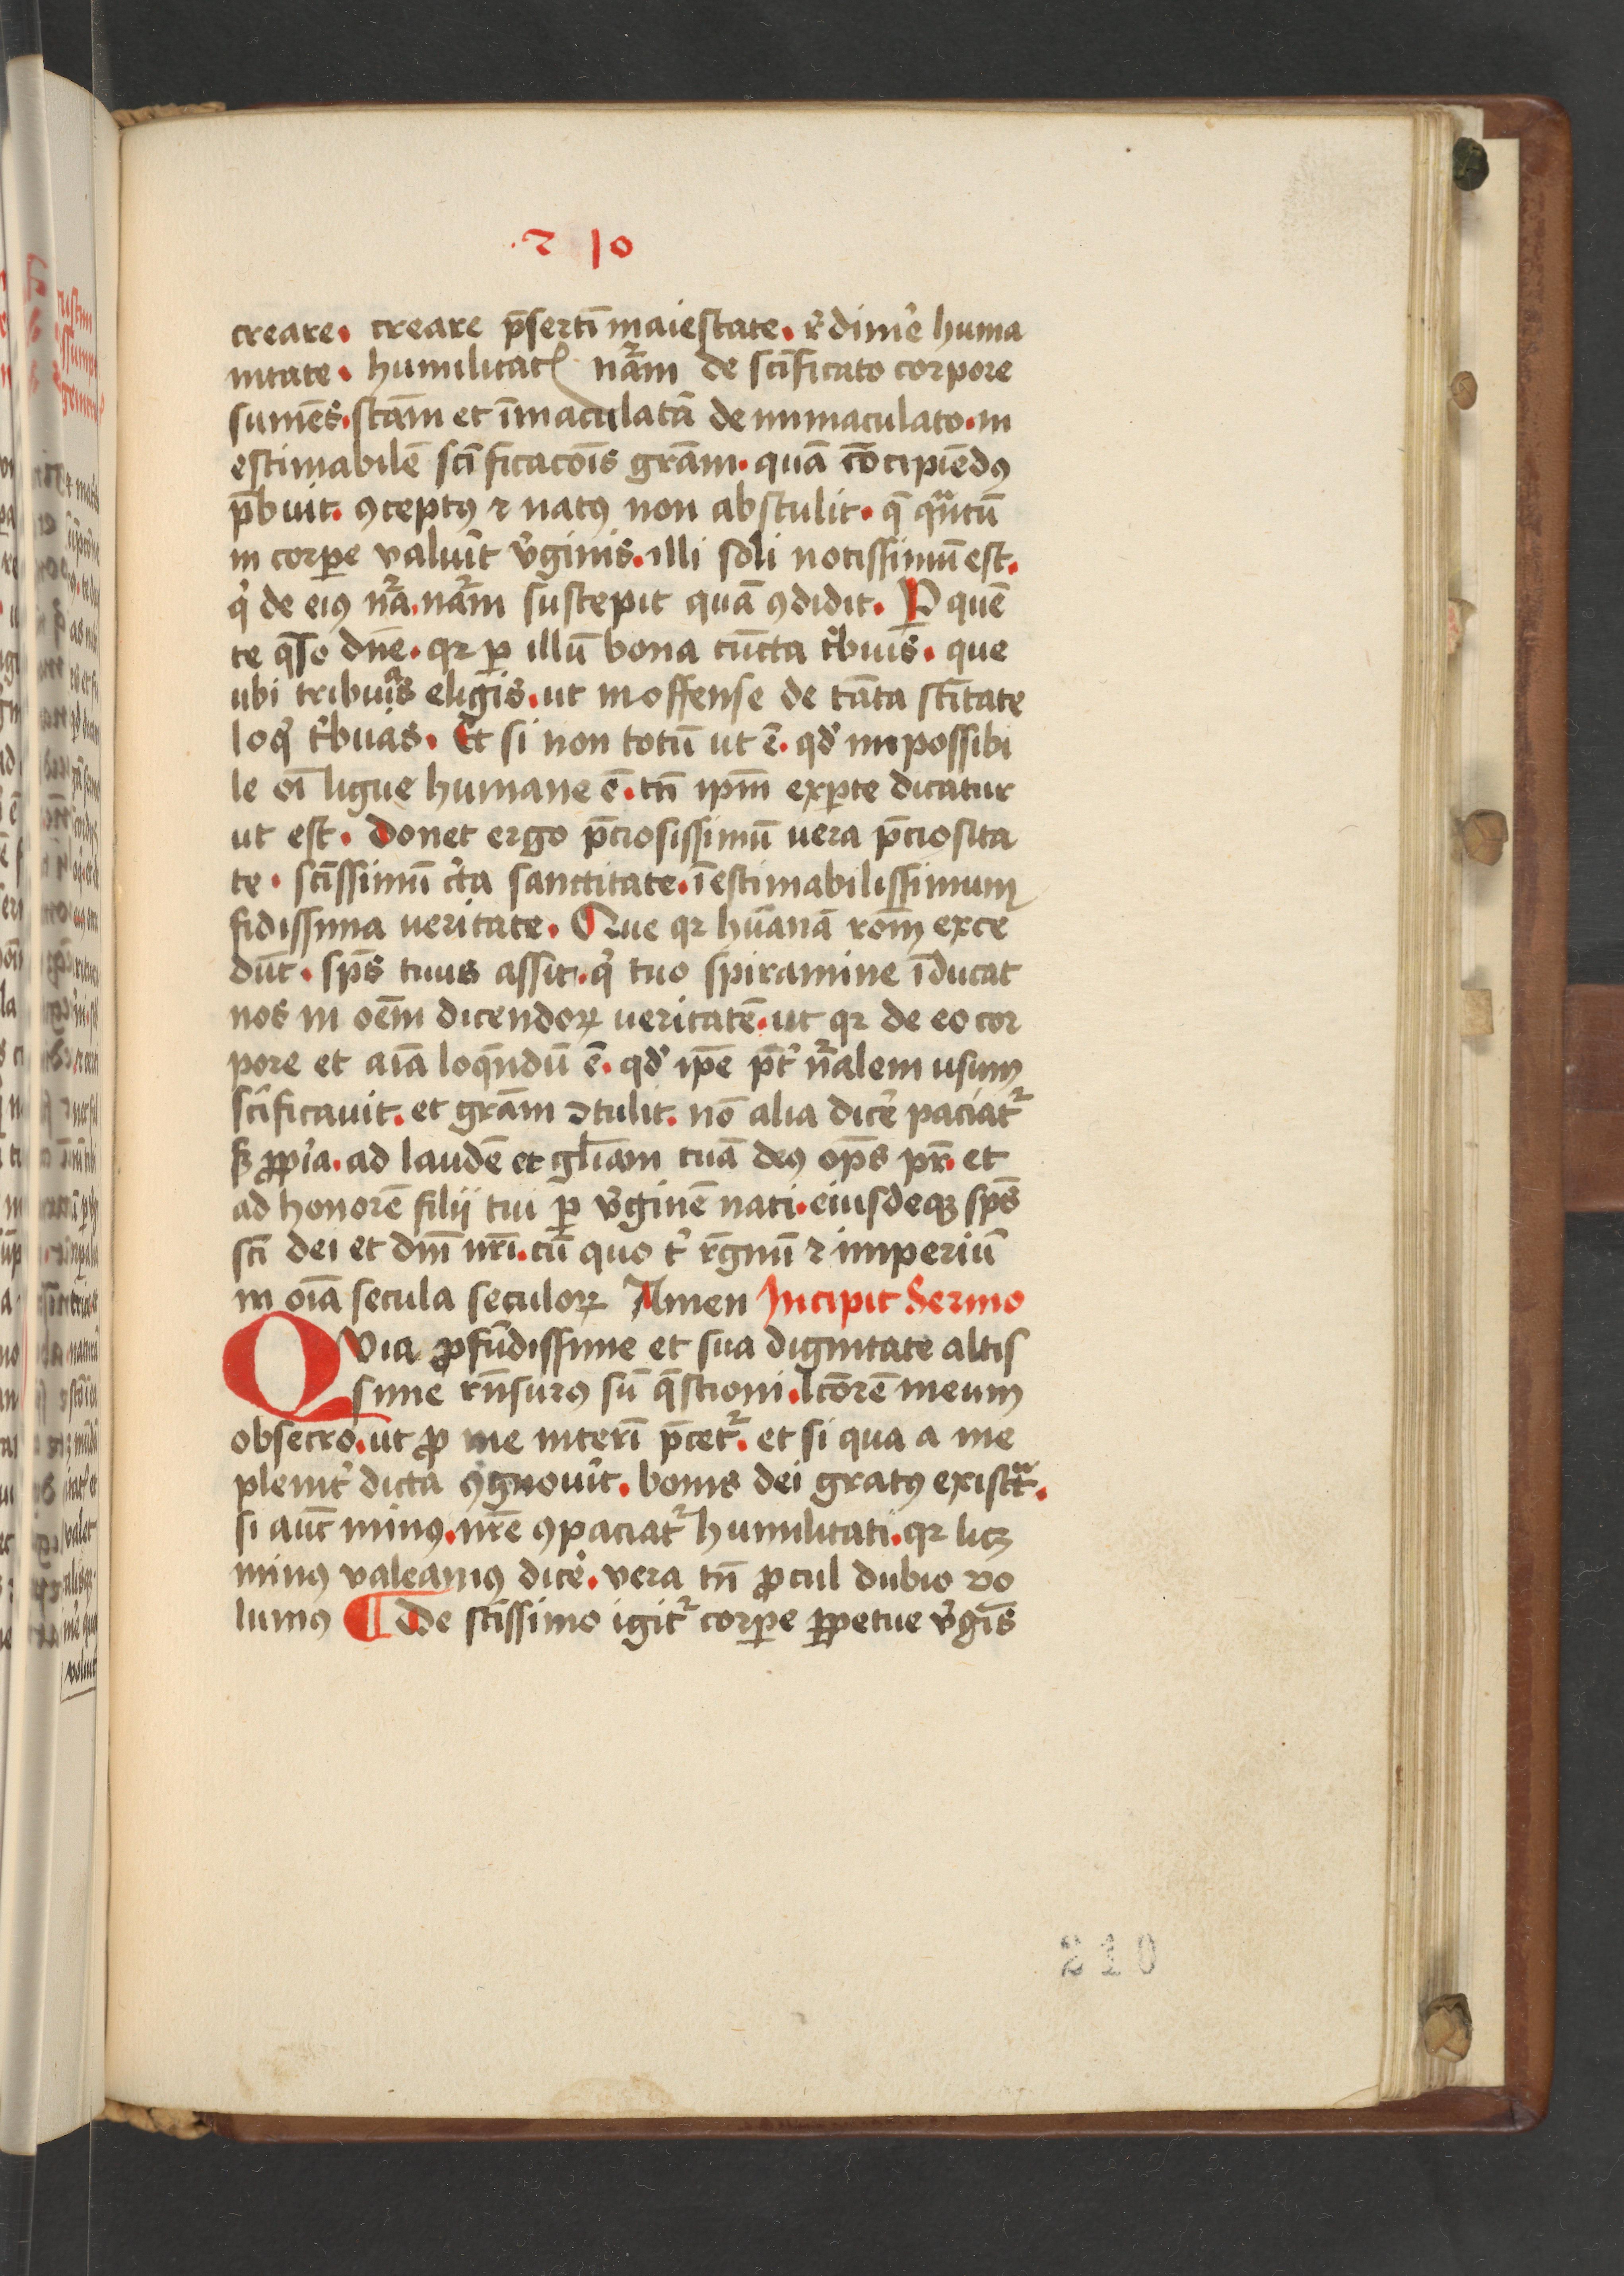 .2 10
creare. creare p̄sertī maiestate. r̓dimē huma
nitate. humilitatꝭ nr̄am de sc̄ificato corpore
sumēs. sc̄am et īmaculatā de immaculato. in
estimabilē sc̄ificacōis grām. quā cōcipiendꝰ
p̄buit. ꝯceptꝰ ⁊ natꝰ non abstulit. q̄ qn̄tū
in corꝑe valuit v̓ginis. illi soli notissimū est.
q̓ de eiꝰ nr̄a. nr̄am suscepit quā ꝯdidit. P quē
te q̄so dn̄e. qꝛ ꝑ illū bona cūcta t̓buis. que
ubi tribuas eligis. ut inoffense de tāta sc̄itate
loq̓ t̓buas. Et si non totū ut ē. qd̓ inpossibi
le oī līgue humane ē. tn̄ ip̄m exꝑte dicatur
ut est. Donet ergo p̄ciosissimū vera p̄ciosita
te. sc̄issimū c̓ta sanctitate. īestimabilissimum
fidissima veritate. Que qꝛ hūanā rōm exce
dūt. sp̄s tuus assit. q̓ tuo spiramine īducat
nos in oēm dicendoꝝ veritatē. ut qꝛ de eo cor
pore et aīa loq̄ndū ē. qd̓ ip̄e p̄t̓ nr̄alem usum
sc̄ificavit. et grām ꝯtulit. nō alia dicē paciatr̄
sꝫ ꝓp̓a. ad laudē et gl̄iam tuā deꝰ op̄s pr̄. et
ad honorē filij tui ꝑ v̓ginē nati. eiusdeqꝫ sp̄s
sc̄i dei et dn̄i nr̄i. cū quo t̓ r̄gnū ⁊ imperiū
in oīa secula seculoꝝ Amen Incipit Sermo
QVia ꝓfūdissime et sua dignitate altis
sime rn̄surꝰ sū q̄stioni. lc̄orē meum
obsecro. ut ꝓ me interī p̄cetr̄. et si qua a me
plenit̓ dicta ꝯgnovit. bonis dei gratꝰ existat.
si aut̄ minꝰ. nr̄e ꝯpaciatr̄ humilitati. qꝛ licꝫ
minꝰ valeamꝰ dicē. vera tn̄ ꝓcul dubio vo
lumꝰ ¶ De sc̄issimo igitr̄ corꝑe ꝑpetue v̓gīs
210